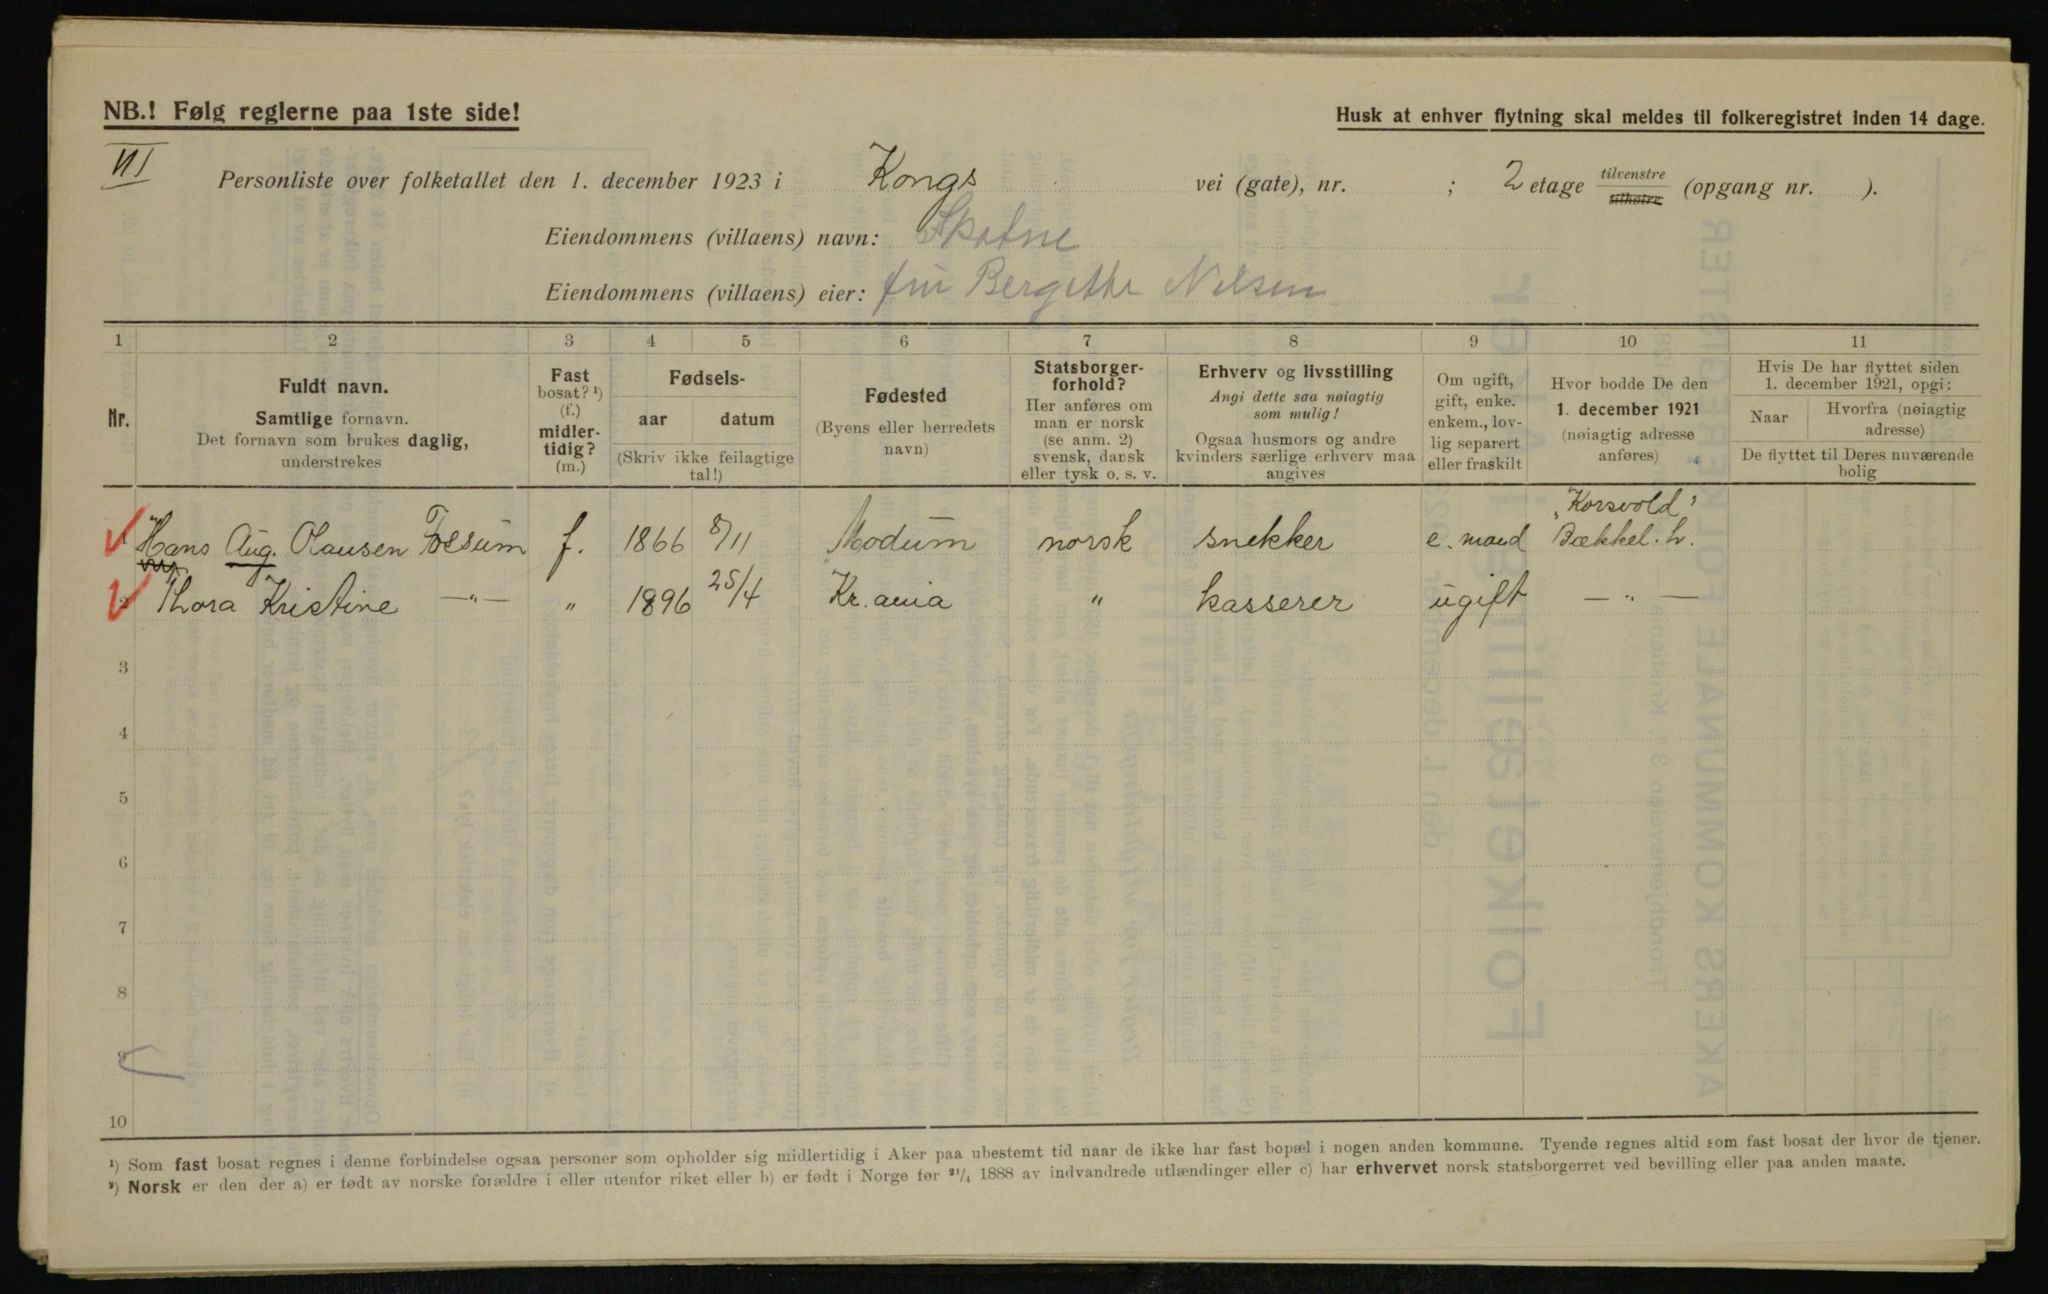 NB.! Følg reglerne paa 1ste side!
Husk at enhver flytning skal meldes til folkeregistret inden 14 dage.
VI
Personliste over folketallet den 1. december 1923 i Kongs vei (gate), nr. ; 2 etage tilvenstre tilhøire (opgang nr. ).
Eiendommens (villaens) navn: Skatne
Eiendommens (villaens) eier: fru Bergithe Nilsen
1 2 3 4 5 6 7 8 9 10 11
Nr.
Fuldt navn.
Samtlige fornavn.
Det fornavn som brukes daglig,
understrekes
Fast
bosat? ¹)
(f.)
midler-
tidig?
(m.)
Fødsels-
aar datum
(Skriv ikke feilagtige
tal!)
Fødested
(Byens eller herredets
navn)
Statsborger-
forhold?
Her anføres om
man er norsk
(se anm. 2)
svensk, dansk
eller tysk o. s. v.
Erhverv og livsstilling
Angi dette saa nøiagtig
som mulig!
Ogsaa husmors og andre
kvinders særlige erhverv maa
angives
Om ugift,
gift, enke.
enkem., lov-
lig separert
eller fraskilt
Hvor bodde De den
1. december 1921
(nøiagtig adresse
anføres)
Hvis De har flyttet siden
1. december 1921, opgi:
Naar
Hvorfra (nøiagtig
adresse)
De flyttet til Deres nuværende
bolig
1 Hans Aug. Olausen Fossum f. 1866 8/11 Modum norsk snekker e. mand "Korsvold" Bækkel. h.
2 Thora Kristine —"— " 1896 25/4 Kr.ania " kasserer ugift — " —
3
4
5
6
7
8
9
10
¹) Som fast bosat regnes i denne forbindelse ogsaa personer som opholder sig midlertidig i Aker paa ubestemt tid naar de ikke har fast bopæl i nogen anden kommune. Tyende regnes altid som fast bosat der hvor de tjener.
²) Norsk er den der a) er født av norske forældre i eller utenfor riket eller b) er født i Norge før ²¹/₄ 1888 av indvandrede utlændinger eller c) har erhvervet norsk statsborgerret ved bevilling eller paa anden maate.